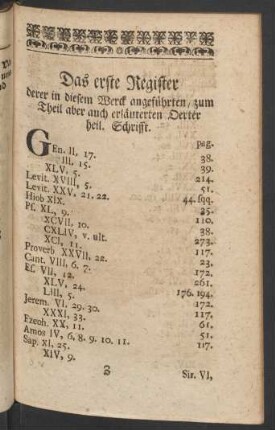 Das erste Register
derer in diesem Werck angeführten, zum
Theil aber auch erläuterten Oerter
heil. Schrifft.
pag.
GEn. II, 17. 38.
III. 15. 39.
XLV, 5. 214.
Levit. XVIII, 5. 51.
Levit. XXV, 21. 22. 44. sqq.
Hiob XIX. 25.
Ps. XL, 9. 110.
XCVII, 10. 38.
CXLIV, v. ult. 273.
XCI, 11. 117.
Proverb XXVII, 22. 23.
Cant. VIII, 6. 7. 172.
Es. VII, 12. 261.
XLV, 24. 176. 194.
LIII, 5. 172.
Jerem. VI. 29. 30. 117.
XXXI, 33. 61.
Ezech. XX, 11. 51.
Amos IV, 6, 8. 9. 10. 11. 117.
Sap. XI, 25.
XIV, 9.
Sir. VI,